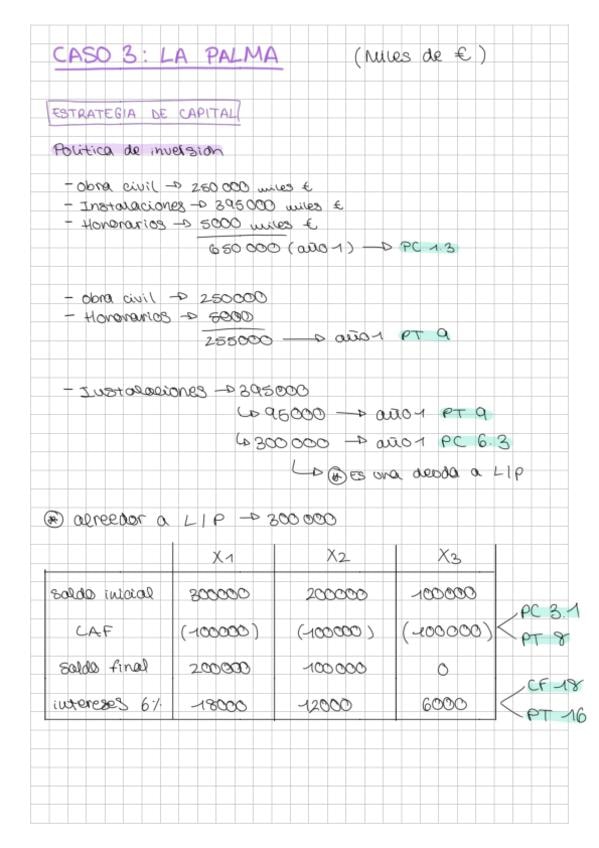 CASO 3: LA PALMA (Miles de €)
ESTRATEGIA DE CAPITAL
Política de inversión
- Obra civil → 250000 miles €
- Instalaciones → 395000 miles €
- Honorarios → 5000 miles €
650000 (año 1) → PC 1.3
- Obra civil → 250000
- Honorarios → 5000
255000 → año 1 PT 9
- Instalaciones → 395000
↳ 95000 → año 1 PT 9
↳ 300000 → año 1 PC 6.3
↳ * Es una deuda a L/P
* acreedor a L/P → 300000
X1 X2 X3
Saldo inicial 300000 200000 100000
CAF (100000) (100000) (100000) PC 3.1
PT 8
Saldo final 200000 100000 0
intereses 6% 18000 12000 6000 CF 18
PT 16